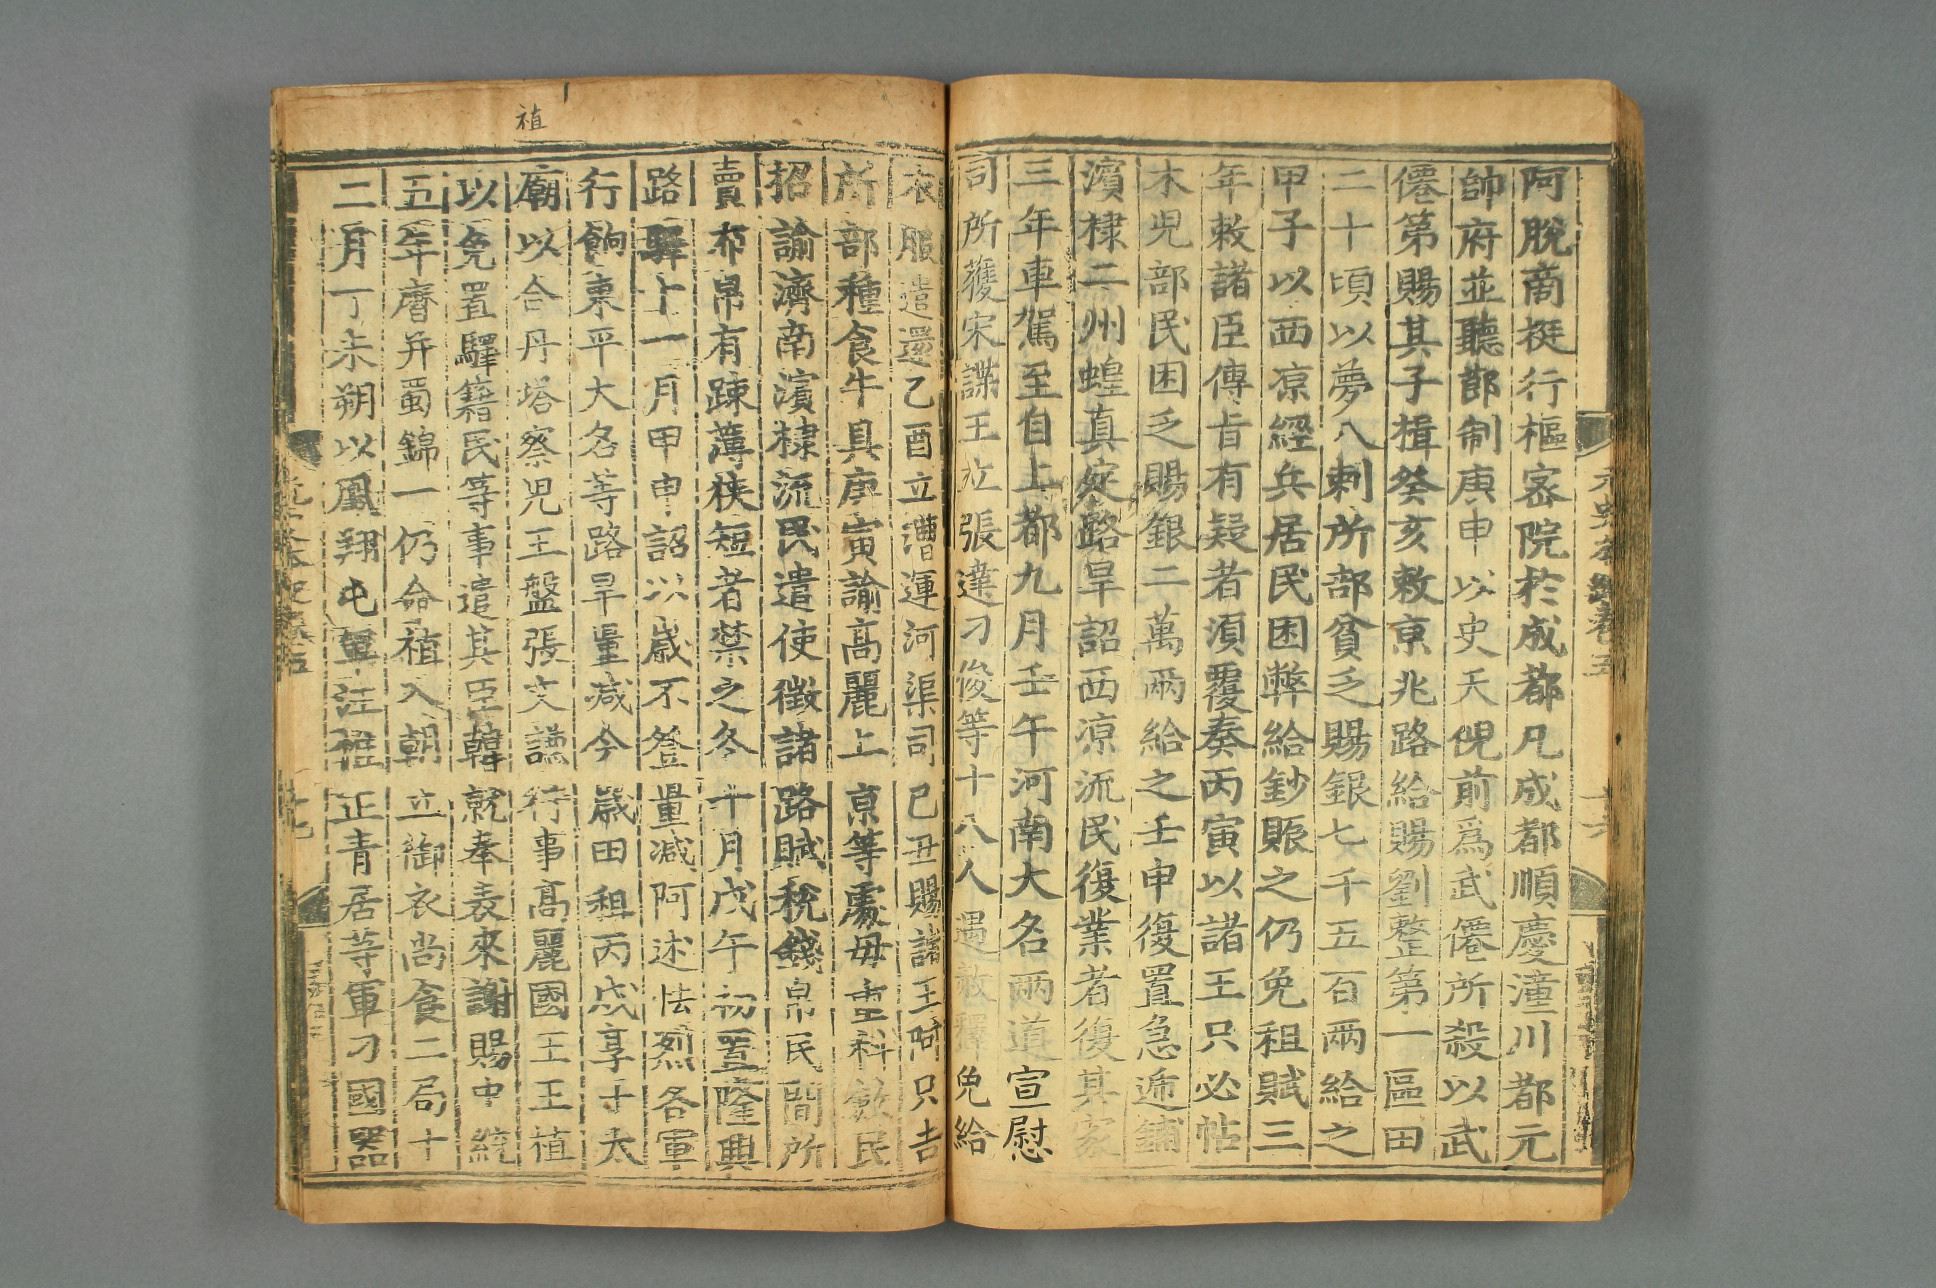 阿脫商挺行樞密院於成都凡成都順慶潼川都元
帥府並聽節制庚申以史天倪前爲武僊所殺以武
僊第賜其子楫癸亥敕京兆路給賜劉整第一區田
二十頃以夢八剌所部貧乏賜銀七千五百兩給之
甲子以西凉經兵居民困弊給鈔賑之仍免租賦三
年敕諸臣傳旨有疑者須覆奏丙寅以諸王只必帖
木兒部民困乏賜銀二萬兩給之壬申復置急遞鋪
濱棣二州蝗真定路旱詔西凉流民復業者復其家
三年車駕至自上都九月壬午河南大名兩道宣慰
司所獲宋諜王立張達刁俊等十八人遇赦釋免給
衣服遣還乙酉立漕運河渠司己丑賜諸王阿只吉
所部種食牛具庚寅諭高麗上京等處毋重科斂民
招諭濟南濱棣流民遣使徵諸路賦稅錢帛民間所
賣布帛有踈薄狹短者禁之冬十月戊午初置隆興
路驛十一月甲申詔以歲不登量減阿述怯烈各軍
行餉東平大名等路旱量減今歲田租丙戌享于太
廟以合丹塔察兒王盤張文謙行事高麗國王王植
以免置驛籍民等事遣其臣韓就奉表來謝賜中統
五年曆并蜀錦一仍命植入朝立御衣尚食二局十
二月丁未朔以鳳翔屯軍汪惟正青居等軍刁國器
植
元史本紀卷五
十六
十七